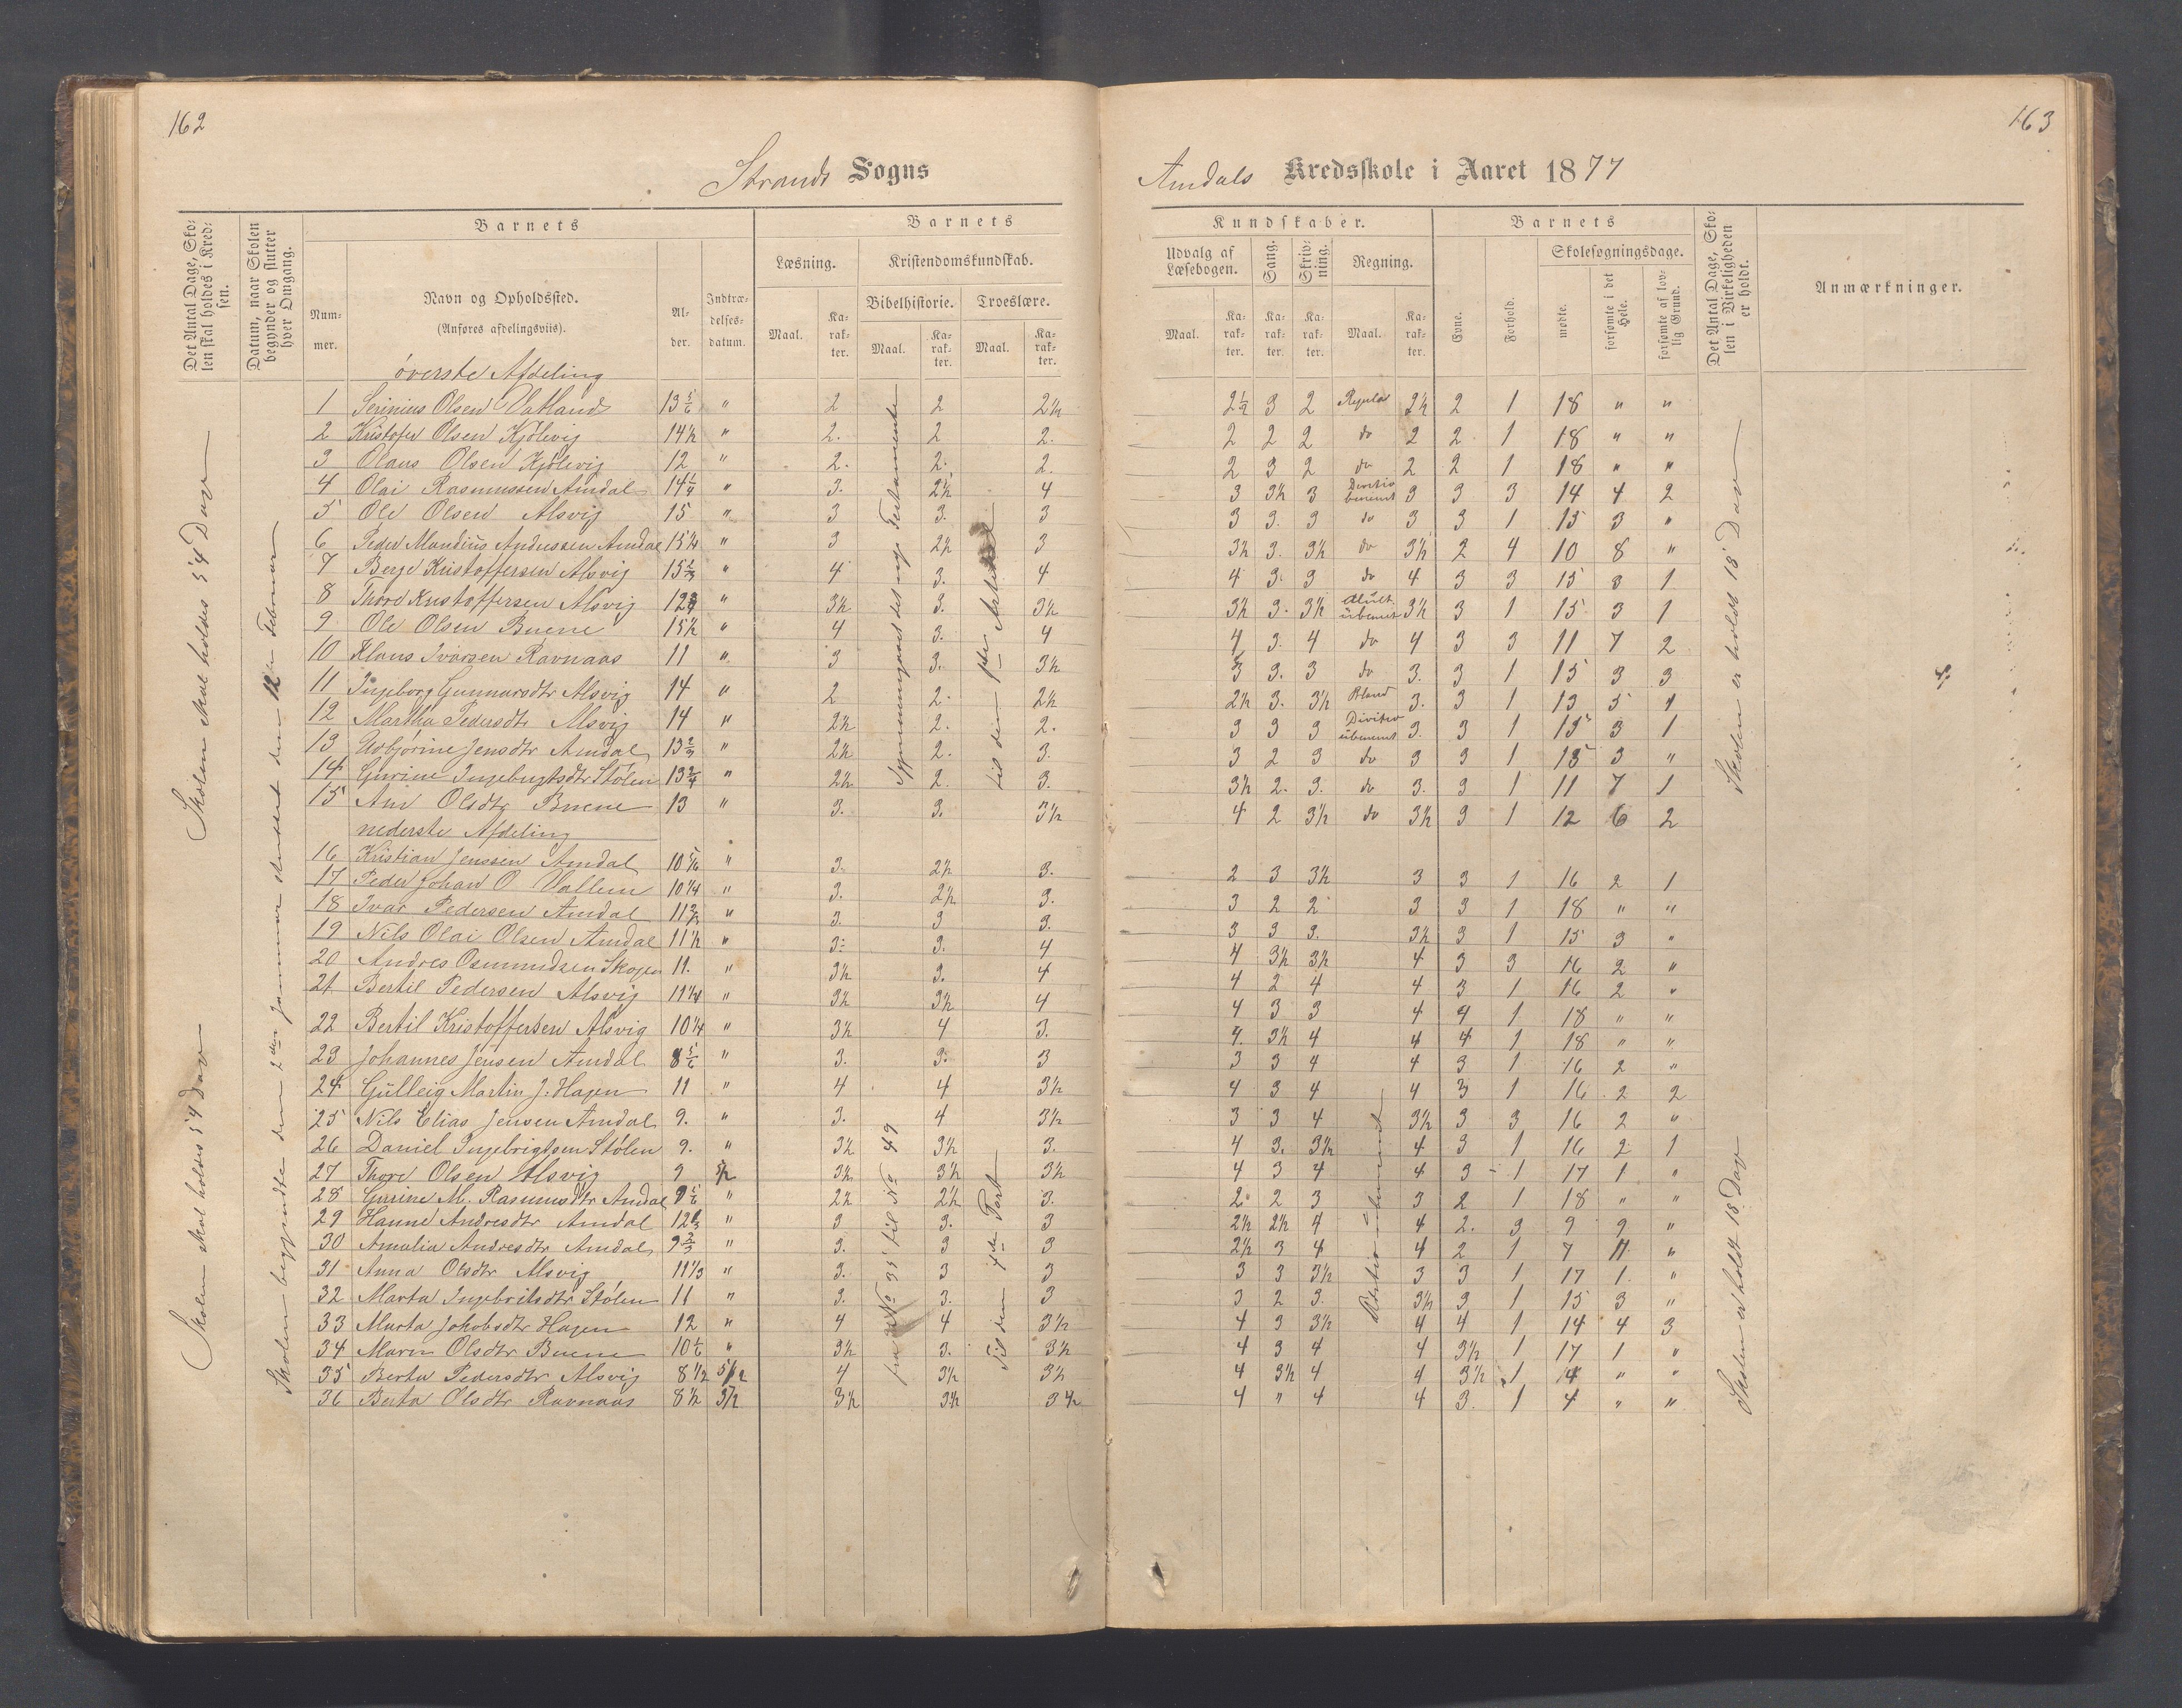 162
163
Strands Sogns
Amdals Kredsskole i Aaret 1877
Det Antal Dage, Skolen skal holdes i Kredsen.
Datum, naar Skolen begynder og slutter hver Omgang.
Barnets
Barnets
Kundskaber.
Barnets
Det Antal Dage, Skolen i Virkeligheden er holdt.
Anmærkninger.
Nummer.
Navn og Opholdssted.
(Anføres afdelingsviis).
Alder.
Indtrædelsesdatum.
Læsning.
Kristendomskundskab.
Bibelhistorie.
Troeslære.
Maal.
Karakter.
Maal.
Karakter.
Maal.
Karakter.
Udvalg af Læsebogen.
Sang.
Skrivning.
Regning.
Maal.
Karakter.
Karakter.
Karakter.
Maal.
Karakter.
Evne.
Forhold.
Skolesøgningsdage.
mødte.
forsømte i det Hele.
forsømte af lovlig Grund.
Skolen skal holdes 54 Dav
Skolen skal holdes 54 Dav
Skolen begyndte den 2den Januar sluttet den 12 Februar
øverste Afdeling
1 Serinius Olsen Vatland 13 5/6 " 2 2 2½ 2½ 3 2 Regula 2½ 2 1 18 " "
2 Kristofer Olsen Kjölevig 14½ " 2. 2 2. 2 2 2 do 2 2 1 18 " "
3 Olaus Olsen Kjölevig 12 " 2. 2. 2. 2 3 2 do 2 2 1 18 " "
4 Olai Rasmussen Amdal 14¼ " 3. 2½ 4 3 3½ 3 Divitio benemt 3 3 3 14 4 2
5 Ole Olsen Alsvig 15 " 3 3. 3 3 3. 3 do 3 3 1 15 3 "
6 Peder Mandius Andressen Amdal 15¼ " 3 2½ 3 3½ 3. 3½ do 3½ 2 4 10 8 "
7 Berge Kristoffersen Alsvig 15 2/3 " 4 3. 4 4 3. 3 do 4 3 3 15 3 1
8 Thore Kristoffersen Alsvig 12¾ " 3½ 3. 3½ 3½ 3. 3½ Mult. übenemt 3½ 3 1 15 3 1
9 Ole Olsen Buene 15½ " 4 3. 4 4 3. 4 do 4 3 3 11 7 2
10 Klaus Ivarsen Ravnaas 11 " 3 3. 3½ 3 3. 3 do 3. 3 1 15 3 3
11 Ingeborg Gunnarsdtr Alsvig 14 " 2 2. 2½ 2½ 3. 3½ Bland 3. 3 1 13 5 1
12 Martha Pedersdtr Alsvig 14 " 2½ 2. 2. 3 3 3 Divitio übenemt 3. 3 1 15 3 1
13 Asbjörine Jensdtr Amdal 13 2/3 " 2½ 2. 3. 3 2 3 do 3 3 1 15 3 "
14 Gurine Ingebrigtsdtr Stölen 13¾ " 2½ 2. 3. 3½ 2. 3. do 3. 3 1 11 7 1
15 Ane Olsdtr Buene 13 " 3. 3. 3½ 4 2 3½ do 3½ 3 1 12 6 2
nederste Afdeling
16 Kristian Jenssen Amdal 10 5/6 " 3. 2½ 3. 2 3 3½ 3 3 1 16 2 1
17 Peder Johan O Vallem 10¼ " 3. 2½ 3. 3 2 2 3 3 1 18 " "
18 Ivar Pedersen Amdal 11 2/3 " 3. 3 3. 3 3 3. 3½ 3 1 15 3 "
19 Nils Olai Olsen Amdal 11½ " 3. 3. 4 4 3½ 3½ 4 3 3 16 2 "
20 Andres Osmundsen Skogen 11. " 3½ 3. 4 4 2 4 4 3 1 16 2 "
21 Bertil Pedersen Alsvig 11¼ " 3½ 3½ 4 4 3 3 4 4 1 18 " "
22 Bertil Kristoffersen Alsvig 10¼ " 3½ 4 3. 4. 3½ 4 4 4 1 18 " "
23 Johannes Jensen Amdal 8 5/6 " 3. 3. 3 3 3 4 4 3 1 16 2 "
24 Gülleig Martin J. Hagen 11 " 4 4 3½ 4 3 4 4 3 1 16 2 2
25 Nils Elias Jensen Amdal 9. " 3. 4 3½ 3 3 4 3½ 3 3 16 2 "
26 Daniel Ingebrigtsen Stölen 9. " 3½ 3½ 3. 4 3. 3½ 4 3 1 16 2 1
27 Thore Olsen Alsvig 9 5/2 3½ 3½ 3½ 4 3 4 4 3 1 17 1 "
28 Gurine M. Rasmusdtr Amdal 9 5/6 " 2½ 2½ 3. 2. 2 3 3 2 1 18 " "
29 Hanne Andresdtr Amdal 12 2/3 " 3 3. 3 2½ 2½ 4 4 2. 3 9 9 "
30 Amalia Andresdtr Amdal 9 2/3 " 3. 3 3 2½ 3 4 4 2 1 7 11 "
31 Anna Olsdtr Alsvig 11 1/3 " 3. 3 3 3 3 3½ 3 3 1 17 1. "
32 Marta Ingebritsdtr Stölen 11 " 3. 3. 3 3 2 3. 3½ 3 1 15 3 "
33 Marta Jakobsdtr Hagen 12 " 4 4 3½ 4 3 3½ 4 4 1 14 4 3
34 Maren Olsdtr Buene 10 1/6 " 3½ 3. 3½ 4 3 4 4 3½ 1 17 1 "
35 Berta Pedersdtr Alsvig 8 1/2 5/12 4 3½ 3½ 4 3½ 4 4 3½ 1 4 " "
36 Berta Olsdtr Ravnaas 8½ 5/2 3½ 3½ 3½ 4 " 4 4 3. 1 4 " "
det nye Testamente
til den 1ste Artikel
fra No 35 til No 49
Til den 4de Part
Skolen er holdt 18 Dav
Skolen er holdt 18 Dav